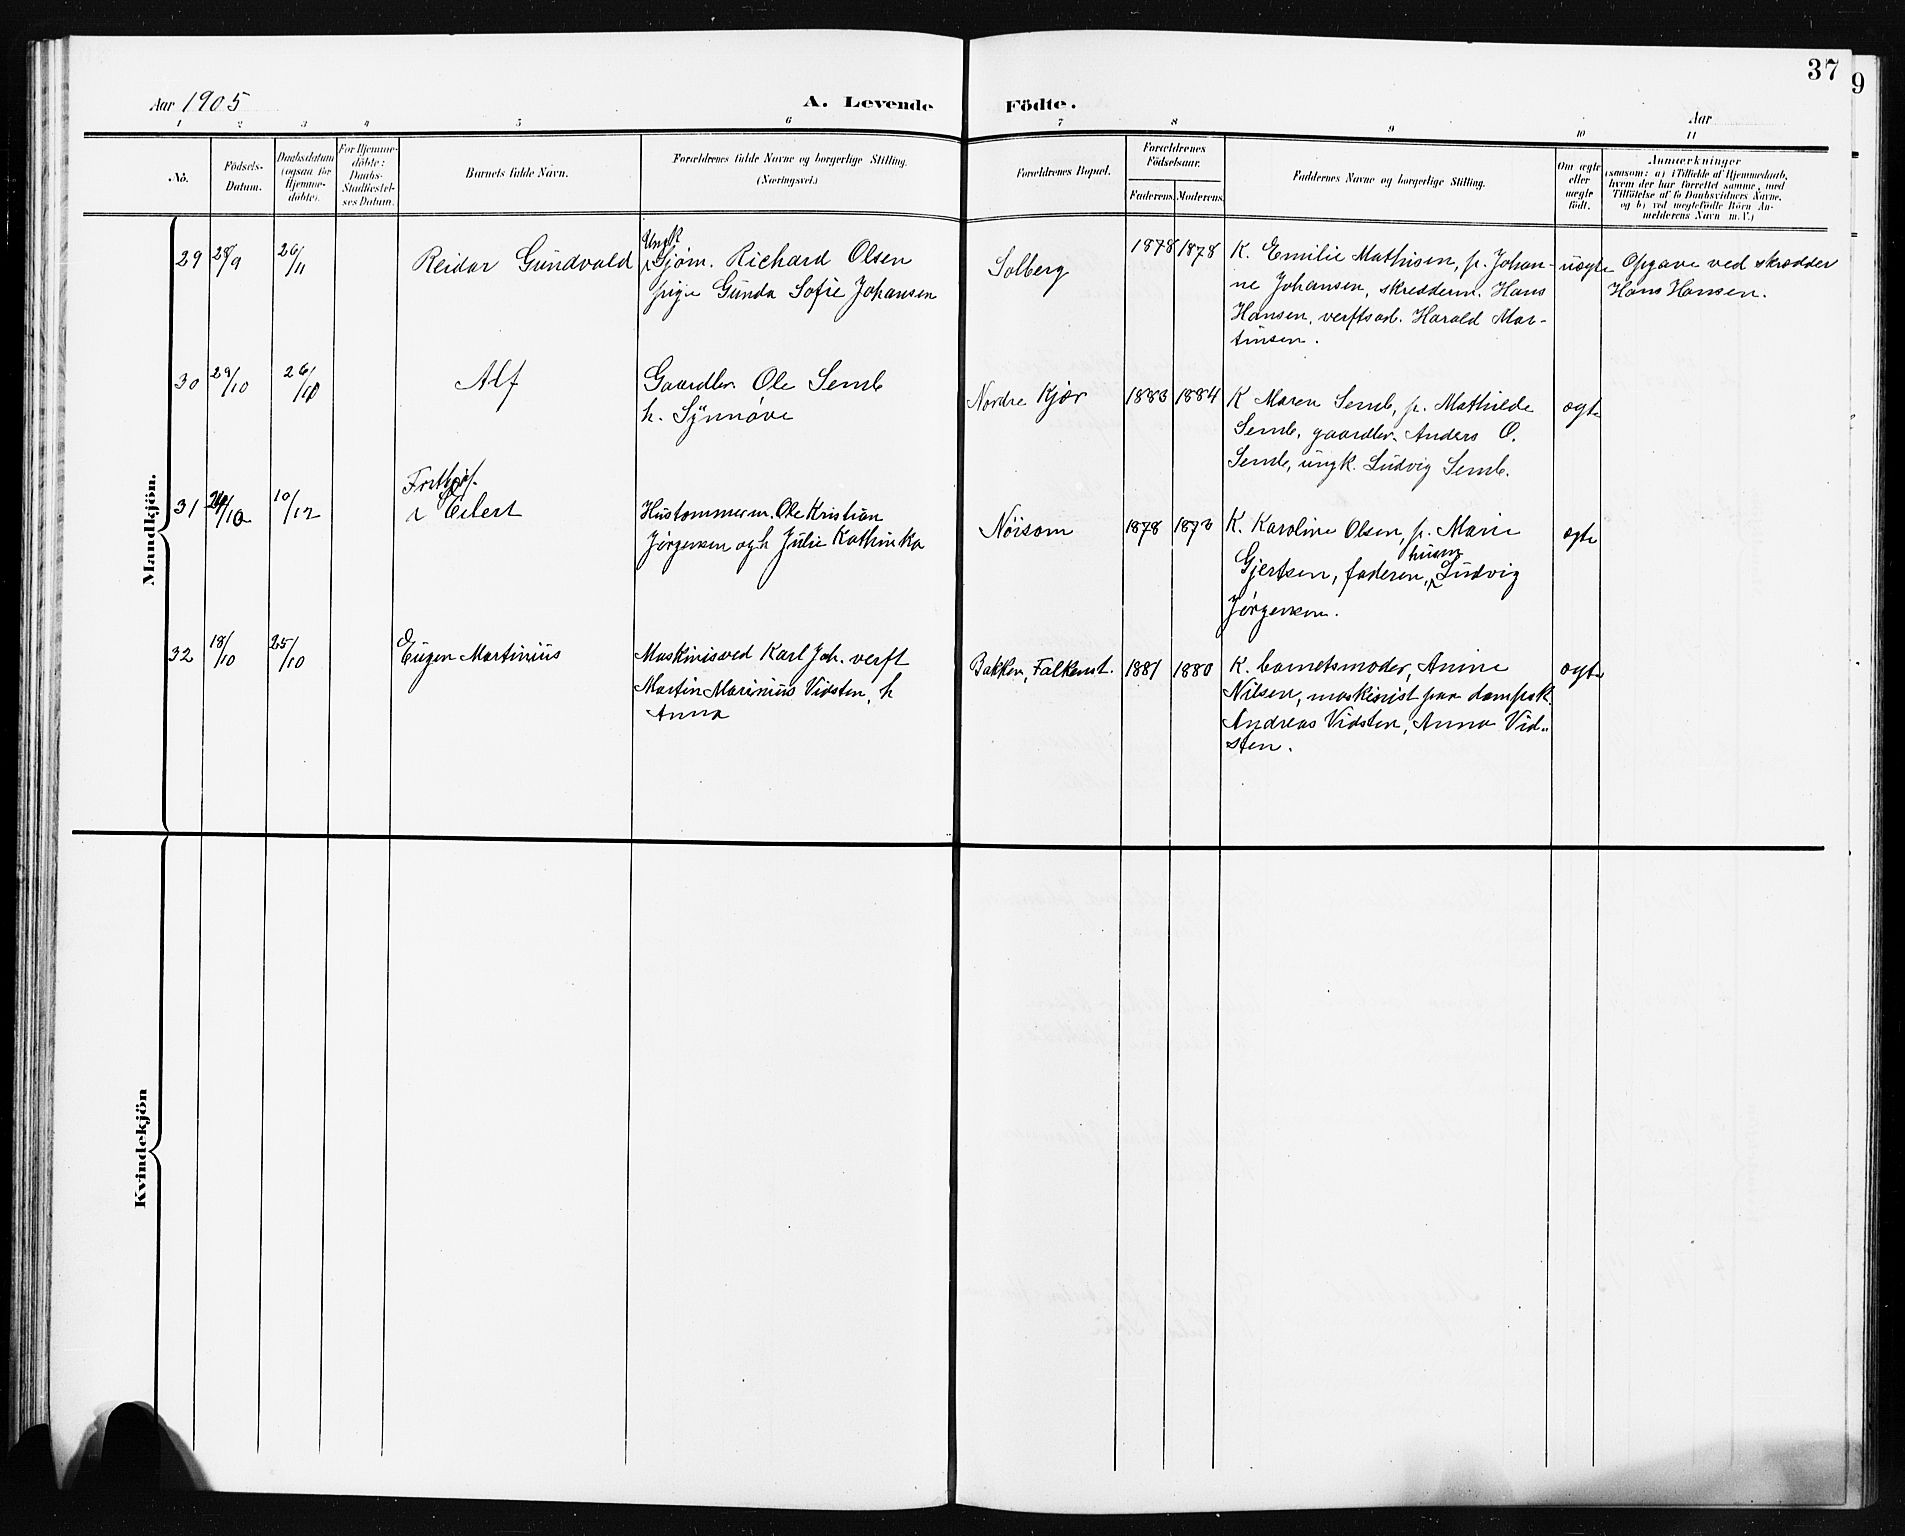 37
9
Aar 1905
A. Levende Födte.
Aar
1 2 3 4 5 6 7 8 9 10 11
No.
Födsels-
Datum.
Daabsdatum
(ogsaa for
Hjemme-
döbte).
For Hjemme-
döbte:
Daabs-
Stadfæstel-
ses Datum.
Barnets fulde Navn.
Forældrenes fulde Navne og borgerlige Stilling.
(Næringsvei.)
Forældrenes Bopæl.
Forældrenes
Födselsaar.
Faderens. Moderens.
Faddernes Navne og borgerlige Stilling.
Om ægte
eller
uægte
födt.
Anmærkninger
(saasom: a) i Tilfælde af Hjemmedaab,
hvem der har forrettet samme, med
Tilföielse af to Daabsvidners Navne,
og b) ved uægtefödte Börn An-
melderens Navn m. V.)
Mandkjön.
29
28/9
26/11
Reidar Gundvald
Ungk
Sjøm. Richard Olsen
pige Gunda Sofie Johansen
Solberg
1878 1878
K. Emilie Mathisen, p. Johan-
ne Johansen, skredderm. Hans
Hansen, verftsarb. Harald Mar-
tinsen.
uægte
Opgave ved skrædder
Hans Hansen.
30
29/10
26/10
Alf
Gaardbr. Ole Semb
h. Synnøve
Nordre Kjær
1883 1884
K Maren Semb, p. Mathilde
Semb, gaardbr. Anders O.
Semb, ungk. Ludvig Semb.
ægte
31
10/12
Eilert
Hustømmerm. Ole Kristian
Jørgensen og h Julie Kathinka
Nøisom
1878 1873
K. Karoline Olsen, p. Marie
Gjertsen, faderen, Ludvig
Jørgensen.
ægte
32
18/10
25/10
Eugen Martinius
Maskinist ved Karl Joh. verft
Martin Marinius Vidsten, h
Anna
Bakken, Falkenst.
1881 1880
K. barnetsmoder, Anine
Nilsen, maskinist paa dampsk.
Andreas Vidsten, Anna Vid-
sten.
ægte
Kvindekjön